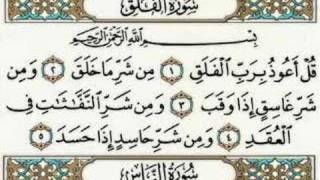 سُورَةُ الْفَلَقِ
بِسْمِ اللَّهِ الرَّحْمَٰنِ الرَّحِيمِ
قُلْ أَعُوذُ بِرَبِّ الْفَلَقِ ١ مِن شَرِّ مَا خَلَقَ ٢ وَمِن
شَرِّ غَاسِقٍ إِذَا وَقَبَ ٣ وَمِن شَرِّ النَّفَّاثَاتِ فِي
الْعُقَدِ ٤ وَمِن شَرِّ حَاسِدٍ إِذَا حَسَدَ ٥
سُورَةُ النَّاسِ